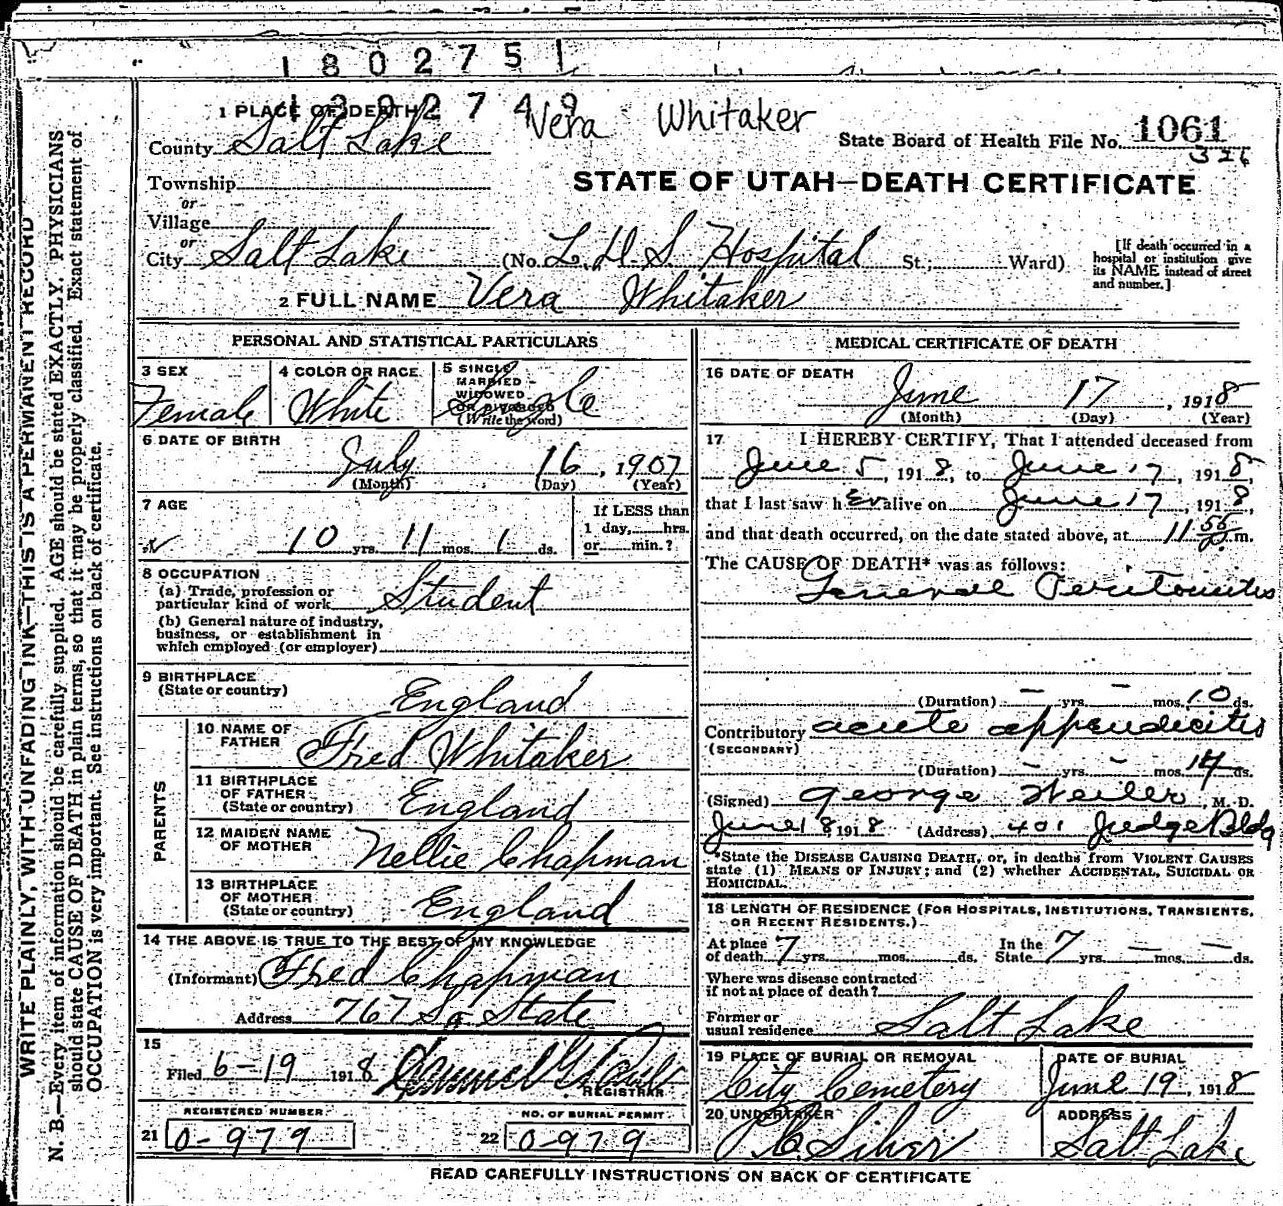 1802751
1302749
Vera Whitaker
1 PLACE OF DEATH
County Salt Lake
State Board of Health File No. 1061
326
Township
or
Village
or
STATE OF UTAH—DEATH CERTIFICATE
City Salt Lake (No. L. D. S Hospital St.; Ward)
[If death occurred in a
hospital or institution give
its NAME instead of street
and number.]
2 FULL NAME Vera Whitaker
PERSONAL AND STATISTICAL PARTICULARS
3 SEX
Female
4 COLOR OR RACE
White
5 SINGLE
MARRIED
WIDOWED
OR DIVORCED
(Write the word)
Single
6 DATE OF BIRTH
July 16, 1907
(Month) (Day) (Year)
7 AGE
10 yrs. 11 mos. 1 ds.
If LESS than
1 day, hrs.
or min.?
8 OCCUPATION
(a) Trade, profession or
particular kind of work Student
(b) General nature of industry,
business, or establishment in
which employed (or employer)
9 BIRTHPLACE
(State or country)
England
PARENTS
10 NAME OF
FATHER
Fred Whitaker
11 BIRTHPLACE
OF FATHER
(State or country)
England
12 MAIDEN NAME
OF MOTHER
Nellie Chapman
13 BIRTHPLACE
OF MOTHER
(State or country)
England
14 THE ABOVE IS TRUE TO THE BEST OF MY KNOWLEDGE
(Informant) Fred Chapman
Address 767 So State
15
Filed 6-19 1918
REGISTRAR
REGISTERED NUMBER
21 0-979
NO. OF BURIAL PERMIT
22 0-979
MEDICAL CERTIFICATE OF DEATH
16 DATE OF DEATH
June 17, 1918
(Month) (Day) (Year)
17 I HEREBY CERTIFY, That I attended deceased from
June 5, 1918, to June 17, 1918,
that I last saw h er alive on June 17, 1918,
and that death occurred, on the date stated above, at 11 55 P. m.
The CAUSE OF DEATH* was as follows:
General Peritonitis
(Duration) - yrs. - mos. 10 ds.
Contributory acute appendicitis
(SECONDARY)
(Duration) - yrs. - mos. 14 ds.
(Signed) George Weiler, M. D.
June 18 1918 (Address) 401 Judge Bldg
*State the DISEASE CAUSING DEATH, or, in deaths from VIOLENT CAUSES
state (1) MEANS OF INJURY; and (2) whether ACCIDENTAL, SUICIDAL OR
HOMICIDAL.
18 LENGTH OF RESIDENCE (FOR HOSPITALS, INSTITUTIONS, TRANSIENTS,
OR RECENT RESIDENTS.)
At place
of death 7 yrs. mos. ds.
In the
State 7 yrs. — mos. — ds.
Where was disease contracted
if not at place of death?
Former or
usual residence Salt Lake
19 PLACE OF BURIAL OR REMOVAL
City Cemetery
DATE OF BURIAL
June 19, 1918
20 UNDERTAKER
Silver
ADDRESS
Salt Lake
READ CAREFULLY INSTRUCTIONS ON BACK OF CERTIFICATE
WRITE PLAINLY, WITH UNFADING INK—THIS IS A PERMANENT RECORD
N. B.—Every item of information should be carefully supplied. AGE should be stated EXACTLY. PHYSICIANS
should state CAUSE OF DEATH in plain terms, so that it may be properly classified. Exact statement of
OCCUPATION is very important. See instructions on back of certificate.